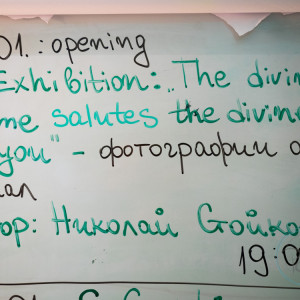 01.: opening
Exhibition: „The divin
me salutes the divin
you" - фотографии о
ал
ор: Николай Стойко
19:0